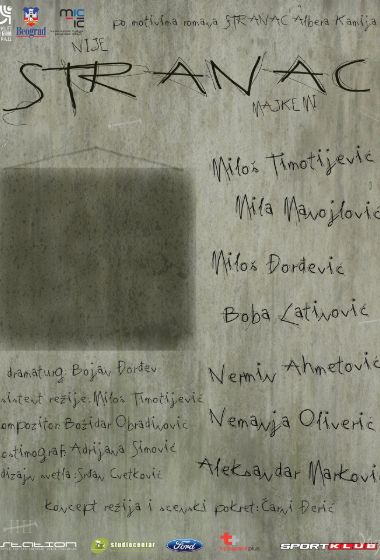 Beograd
MIC
po motivima romana STRANAC Albera Kamija
NIJE
STRANAC
MAJKEMI
Miloš Timotijević
Mila Manojlović
Miloš Đorđević
Boba Latinović
Nermin Ahmetović
Nemanja Oliverić
Aleksandar Marković
dramaturg: Bojan Đorđev
sistent režije: Miloš Timotijević
ompozitor: Božidar Obradinović
ostimograf: Adrijana Simović
dizajn svetla: Srđan Cvetković
koncept režija i scenski pokret: Čarni Đerić
station
studiocentar
Ford
plus
SPORTKLUB